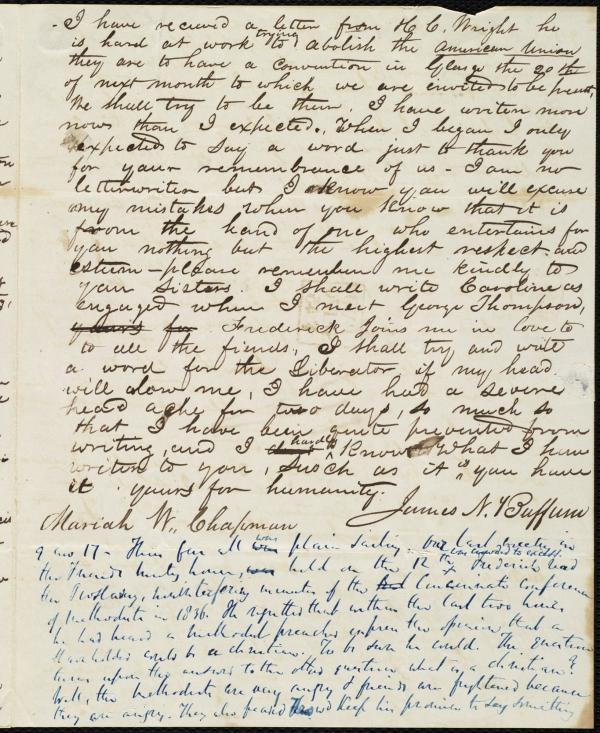 - I have received a letter from H C. Wright he
is hard at work trying to abolish the American Union
they are to have a convention in Glasgo the 20th
of next month to which we are envited to be present,
We shall try to be there. I have writen more
nows than I expected., When I began I only
expected to say a word just to thank you
for your remembrance of us - I am no
letterwriter but I know you will excuse
my mistakes when you know that it is
from the hand of one who entertains for
you nothing but the highest respect and
esteem - please remember me kindly to
your Sisters. I shall write Caroline as
engaged when I meet George Thompson,
yours for Frederick Joins me in love to
to all the fiends, I shall try and write
a word for the Liberator if my head
will alow me, I have had a severe
head ache for two days, so much so
that I have been quite prevented from
writing, and I hardly know What I have
writen to you, Such as it is you have
it. yours for humanity.
James N. Buffum
Mariah W. Chapman
9 mo 17 - Thus far all was plain sailing. Our last meeting in
the Friends meeting house, was held on the 12th & was crowded to excess. Frederick read
the pro slavery, minutes of the Cincinnati conference
of methodists in 1836. He regretted that within the last two hours
he had heard a methodist preacher express the opinion that a
Slaveholder could be a christian. To be sure he could. The question
turns upon the answer to the other question what is a christian?
Well, the methodists are very angry & friends are frightened because
they are angry. They also feared he wd keep his promise to say something